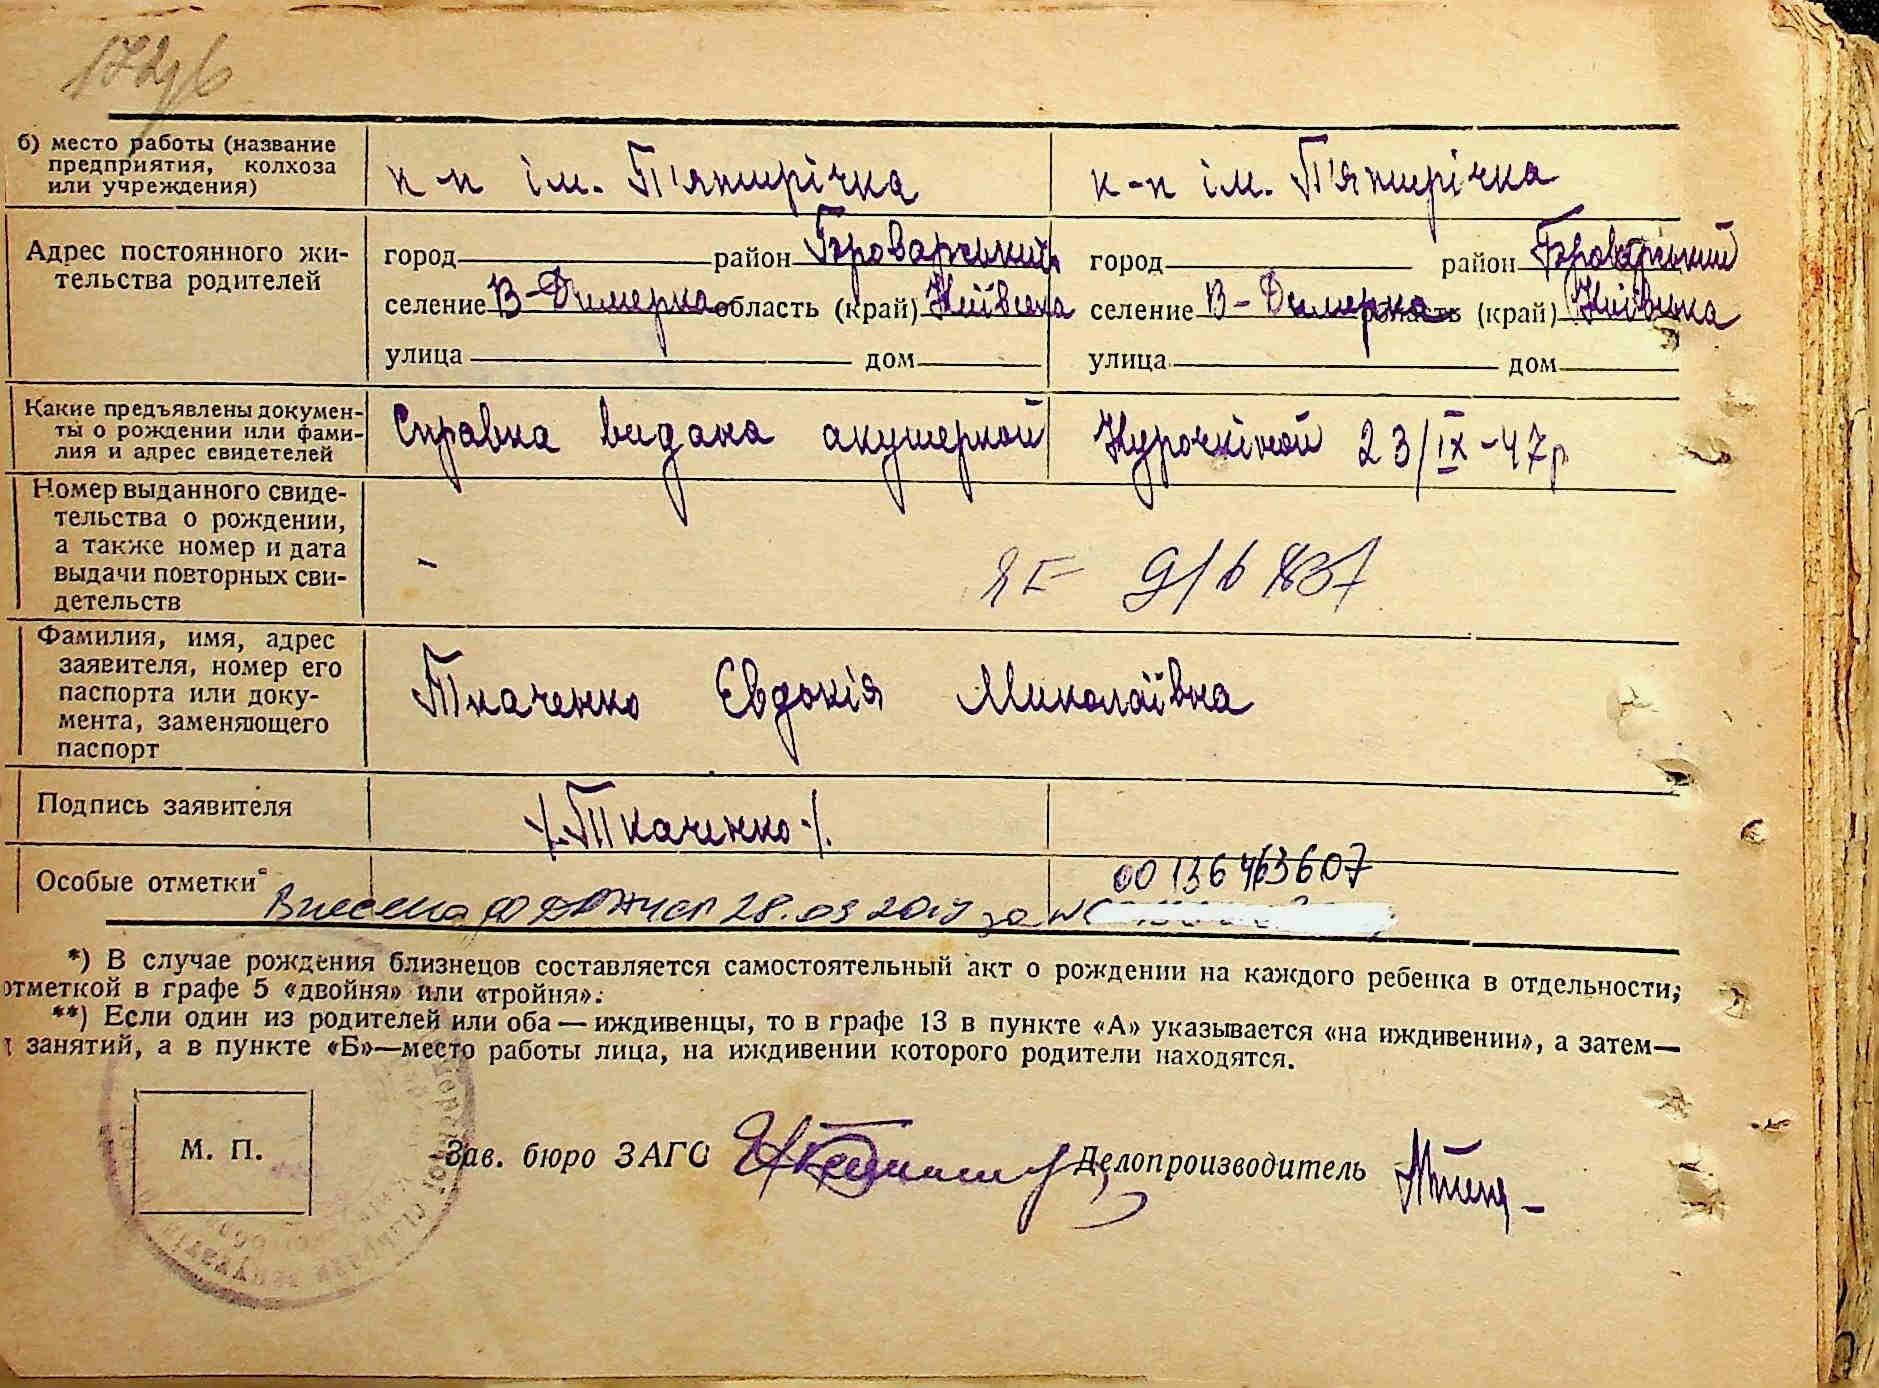 б) место работы (название
предприятия, колхоза
или учреждения)
к-п ім. П'ятирічка
к-п ім. П'ятирічка
Адрес постоянного жи-
тельства родителей
город район Броварський
селение В-Димерка область (край) Київська
улица дом
город район Броварський
селение В-Димерка область (край) Київська
улица дом
Какие предъявлены докумен-
ты о рождении или фами-
лия и адрес свидетелей
Справка видана акушеркой Курочкіной 23/IX-47р
Номер выданного свиде-
тельства о рождении,
а также номер и дата
выдачи повторных сви-
детельств
-
Фамилия, имя, адрес
заявителя, номер его
паспорта или доку-
мента, заменяющего
паспорт
Ткаченко Евдокія Миколаївна
Подпись заявителя
/.Ткаченко./.
Особые отметки
00136463607
Внесено 28.03 за №
*) В случае рождения близнецов составляется самостоятельный акт о рождении на каждого ребенка в отдельности;
отметкой в графе 5 «двойня» или «тройня».
**) Если один из родителей или оба — иждивенцы, то в графе 13 в пункте «А» указывается «на иждивении», а затем—
занятий, а в пункте «Б»—место работы лица, на иждивении которого родители находятся.
М. П.
Зав. бюро ЗАГС
Делопроизводитель